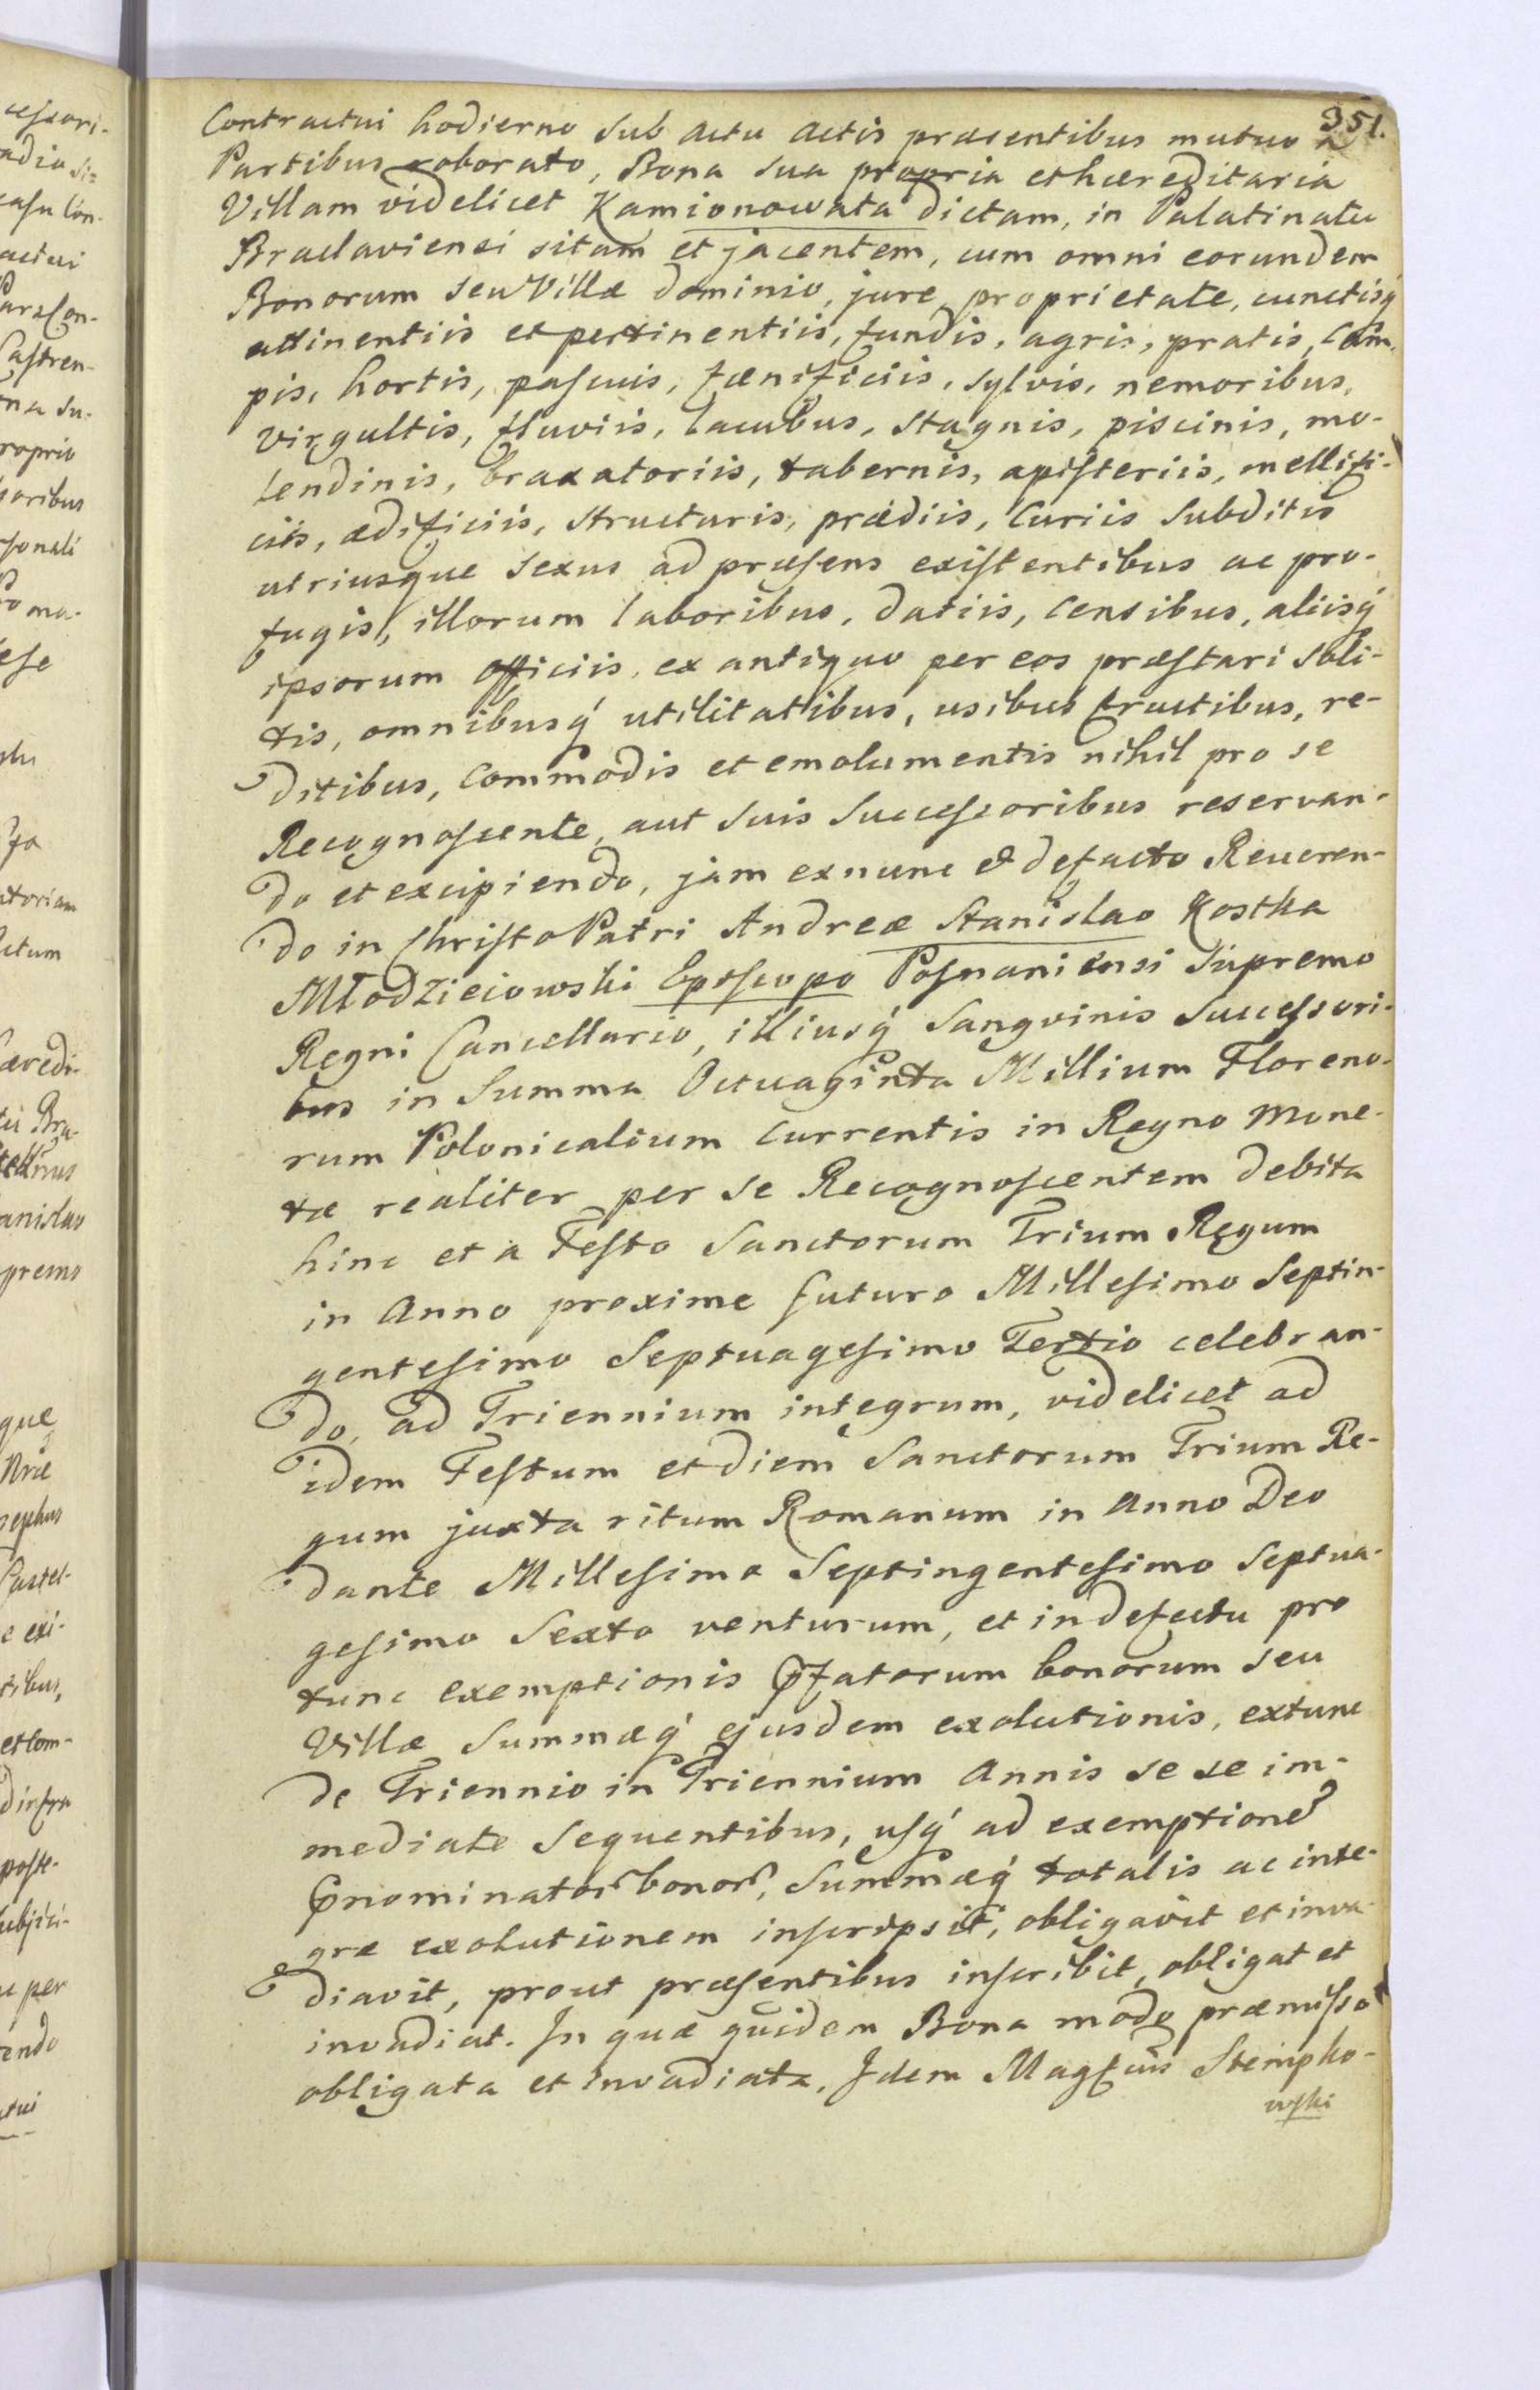 351.
Contractui hodierno sub actu actis præsentibus mutuo a
Partibus roborato, Bona sua propria et hæreditaria
Villam videlicet Kamionowata dictam, in Palatinatu
Braclaviensi sitam et jacentem, cum omni eorundem
Bonorum seu Villæ dominio, jure, proprietate, cunctisq́
attinentiis et pertinentiis, fundis, agris, pratis, Cam-
pis, hortis, pascuis, fænificiis, sylvis, nemoribus,
virgultis, fluviis, lacubus, stagnis, piscinis, mo-
lendinis, braxatoriis, tabernis, apisteriis, mellifi-
ciis, ædificiis, structuris, prædiis, Curiis Subditis
utriusque sexus ad præsens existentibus ac pro-
fugis, illorum laboribus, datiis, Censibus, aliisq́
ipsorum officiis, ex antiquo per eos præstari soli-
tis, omnibusq́ utilitatibus, usibus fructibus, re-
ditibus, Commodis et emolumentis nihil pro se
Recognoscente, aut suis Successoribus reservan-
do et excipiendo, jam ex nunc & defacto Reveren-
do in Christo Patri Andreæ Stanislao Kostka
Młodzieiowski Episcopo Posnaniensi Supremo
Regni Cancellario, illiusq́ Sangvinis Successori-
bus in Summa Octuaginta Millium Floreno-
rum Polonicalium Currentis in Regno Mone-
tæ realiter per se Recognoscentem debita
hinc et a Festo Sanctorum Trium Regum
in Anno proxime futuro Millesimo Septin-
gentesimo Septuagesimo Tertio celebran-
do, ad Triennium integrum, videlicet ad
idem Festum et diem Sanctorum Trium Re-
gum juxta ritum Romanum in Anno Deo
dante Millesimo Septingentesimo Septua-
gesimo Sexto venturum, et in defectu pro
tunc exemptionis Pfatorum bonorum seu
Villæ Summæq́ ejusdem exolutionis, extunc
de Triennio in Triennium Annis se se im-
mediate Sequentibus, usq́ ad exemptionē
Pnominator bonor, Summæq́ totalis ac inte-
græ exolutionem inscripsit, obligavit et inva-
diavit, prout præsentibus inscribit, obligat et
invadiat. In quæ quidem Bona modo præmisso
obligata et invadiata, Idem Magfcus Stempko-
wski